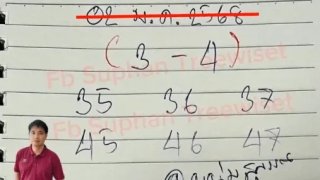 02 ม.ค. 2568
(3 - 4)
Fb Suphan Treewiset
35 36 37
Fb Suphan Treewiset
45 46 47